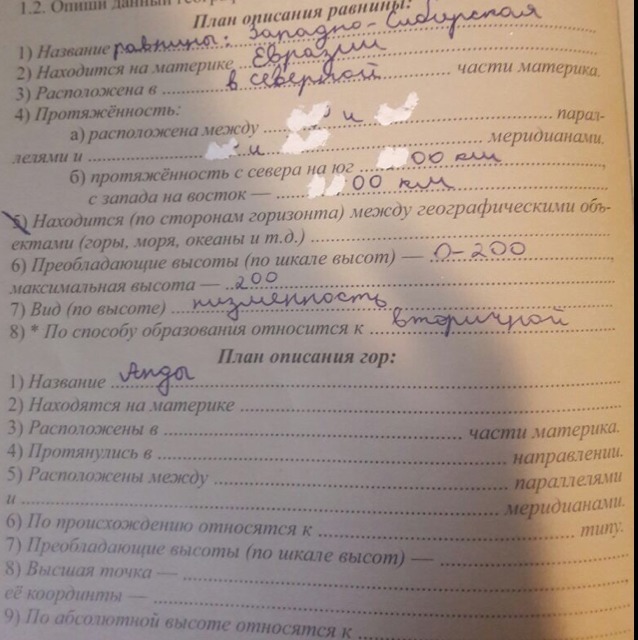 1.2. Опиши данный
План описания равнины:
1) Название равнины: Западно-Сибирская
2) Находится на материке Евразии
3) Расположена в в северной части материка.
4) Протяжённость:
а) расположена между и парал-
лелями и и меридианами.
б) протяжённость с севера на юг 00 км,
с запада на восток — 00 км
5) Находится (по сторонам горизонта) между географическими объ-
ектами (горы, моря, океаны и т.д.)
6) Преобладающие высоты (по шкале высот) — 0-200,
максимальная высота — 200
7) Вид (по высоте) низменность
8) * По способу образования относится к вторичной
План описания гор:
1) Название Анды
2) Находятся на материке
3) Расположены в части материка.
4) Протянулись в направлении.
5) Расположены между параллелями
и меридианами.
6) По происхождению относятся к типу.
7) Преобладающие высоты (по шкале высот) —
8) Высшая точка —
её координты —
9) По абсолютной высоте относятся к